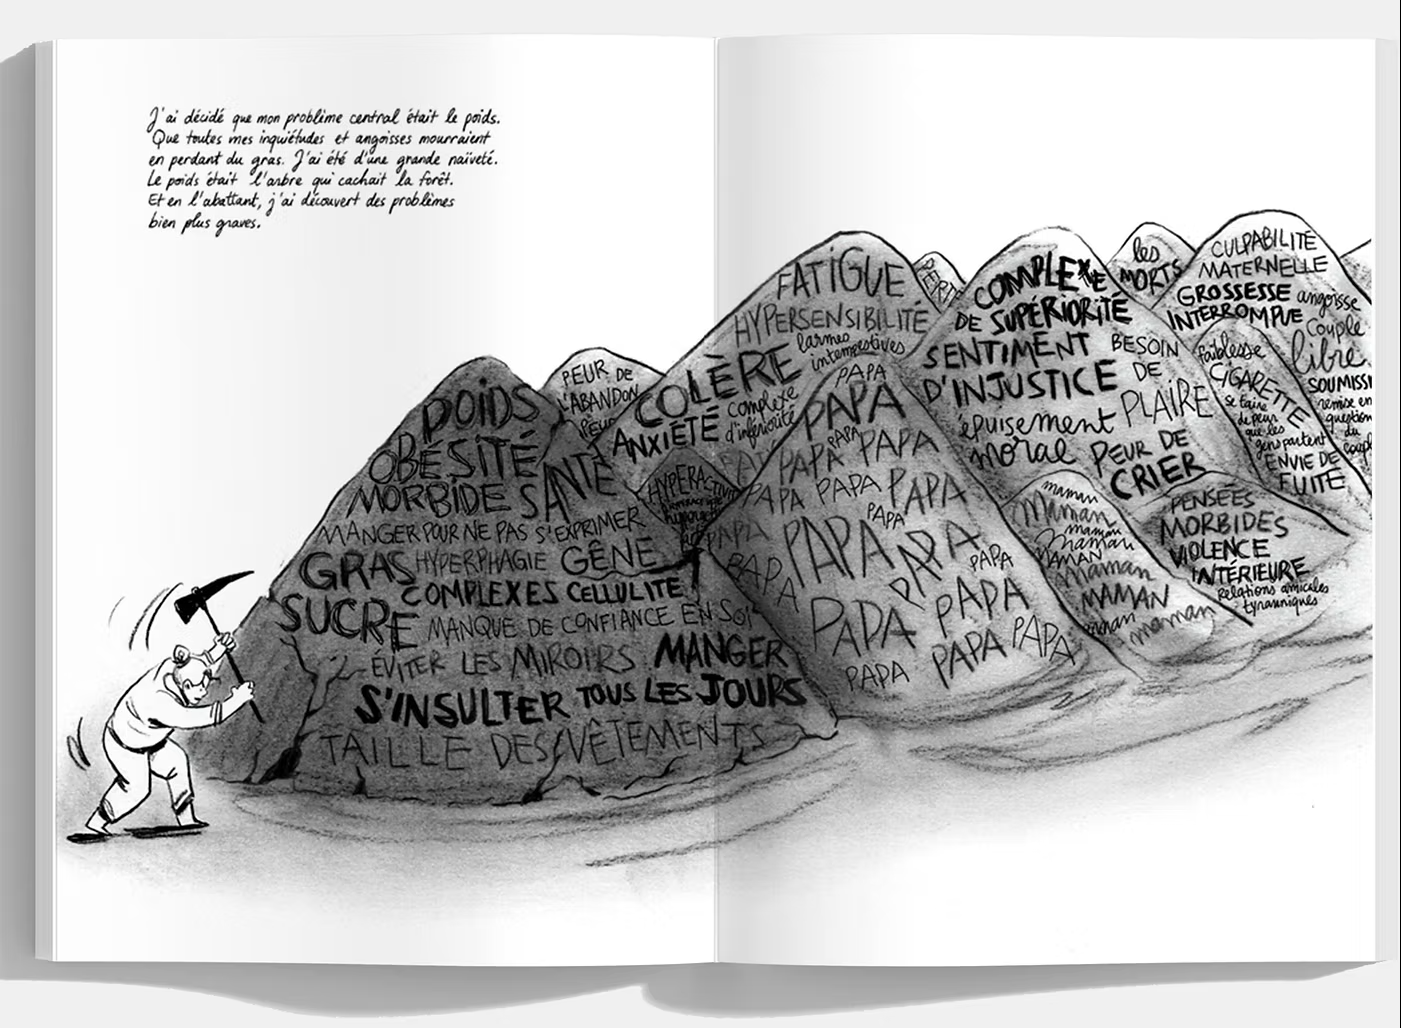 J'ai décidé que mon problème central était le poids.
Que toutes mes inquiétudes et angoisses mourraient
en perdant du gras. J'ai été d'une grande naïveté.
Le poids était l'arbre qui cachait la forêt.
Et en l'abattant, j'ai découvert des problèmes
bien plus graves.
POIDS
OBÉSITÉ
MORBIDE SANTÉ
MANGER POUR NE PAS S'EXPRIMER
GRAS HYPERPHAGIE GÊNE
COMPLEXES CELLULITE
SUCRE MANQUE DE CONFIANCE EN SOI
ÉVITER LES MIROIRS MANGER
S'INSULTER TOUS LES JOURS
TAILLE DES VÊTEMENTS
PEUR DE
L'ABANDON
PEUR
FATIGUE
HYPERSENSIBILITÉ
larmes
intempestives
COLÈRE
ANXIÉTÉ
complexe
d'infériorité
HYPERACTIVITÉ
PAPA
PAPA
PAPA
PAPA PAPA
PAPA PAPA PAPA
PAPA
PAPA
PAPA PAPA
PAPA
PAPA
PAPA PAPA
PAPA
PAPA PAPA PAPA
COMPLEXE
DE SUPÉRIORITÉ
SENTIMENT
D'INJUSTICE
BESOIN
DE
PLAIRE
épuisement
moral
PEUR DE
CRIER
les
MORTS
CULPABILITÉ
MATERNELLE
GROSSESSE
INTERROMPUE
angoisse
Couple
libre
SOUMISSI
remise en
question
du
couple
faiblesse
CIGARETTE
se taire
de peur
que les
gens partent
ENVIE DE
FUITE
maman
Maman
maman
Maman
MAMAN
Maman
MAMAN
maman
maman
PENSÉES
MORBIDES
VIOLENCE
INTÉRIEURE
Relations amicales
tyranniques